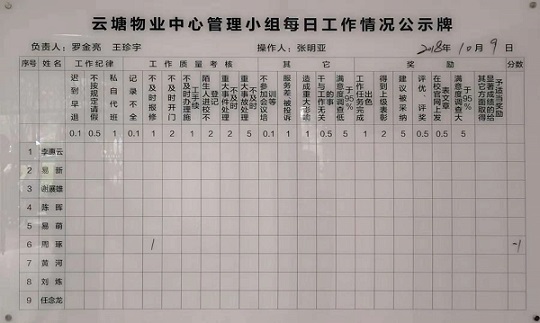 云塘物业中心管理小组每日工作情况公示牌
负责人：罗金亮 王珍宇 操作人：张明亚 2018年10月9日
序号 姓名 工作纪律 工作质量考核 其它 奖励 分数
迟到早退 不按规定请假 私自代班 记录不全 不及时报修 不及时开门 不及时办理 陌生人进校不登记 重大事件处理不及时 重大事故处理不及时 不参加会议培训等 服务差被投诉 造成重大影响 干与工作无关的事 满意度调查低于95% 工作任务完成出色 得到上级表彰 建议被采纳 评优、评奖 在校官网上发表文章 满意度调查大于95%
0.1 0.5 1 0.1 1 1 1 2 2 5 0.1 1 1 0.5 5 1 2 1 1 0.5 5
1 李原云
2 易新
3 谢展雄
4 陈晖
5 易萌
6 周琢 1 -1
7 黄河
8 刘炼
9 任念龙